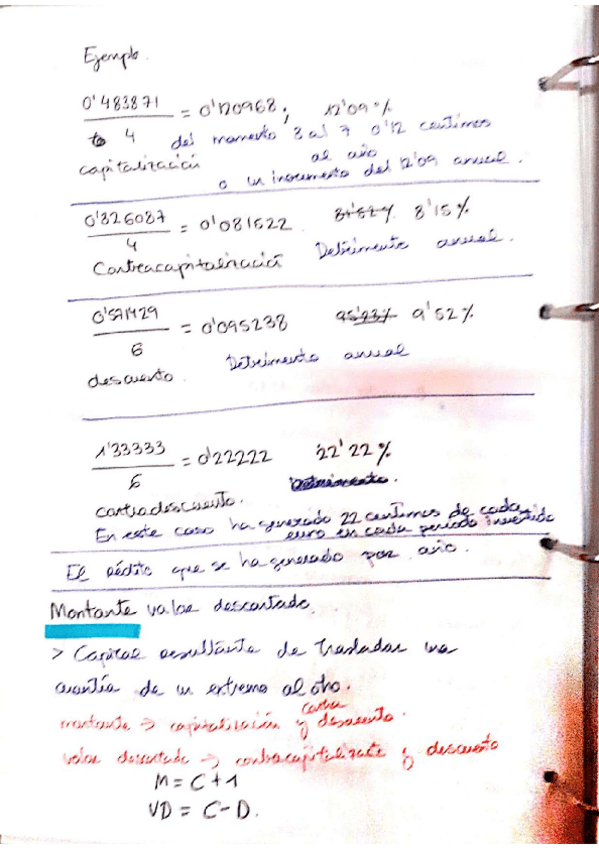 Ejemplo.
0'483871 / 4 = 0'120968; 12'09%
del momento 3 al 7 0'12 centimos
capitalización al año
o un incremento del 12'09 anual.
0'326087 / 4 = 0'081522 81'52% 8'15%
Contracapitalización Detrimento anual.
0'571429 / 6 = 0'095238 95'23% 9'52%
descuento. Detrimento anual
1'33333 / 6 = 0'22222 22'22%
Detrimento.
contradescuento.
En este caso ha generado 22 centimos de cada
euro en cada periodo invertido
El rédito que se ha generado por año.
Montante valor descontado.
> Capital resultante de trasladar una
cuantía de un extremo al otro.
contra
montante → capitalización y descuento.
valor descontado → contracapitalizate y descuento
M = C + 1
VD = C - D.